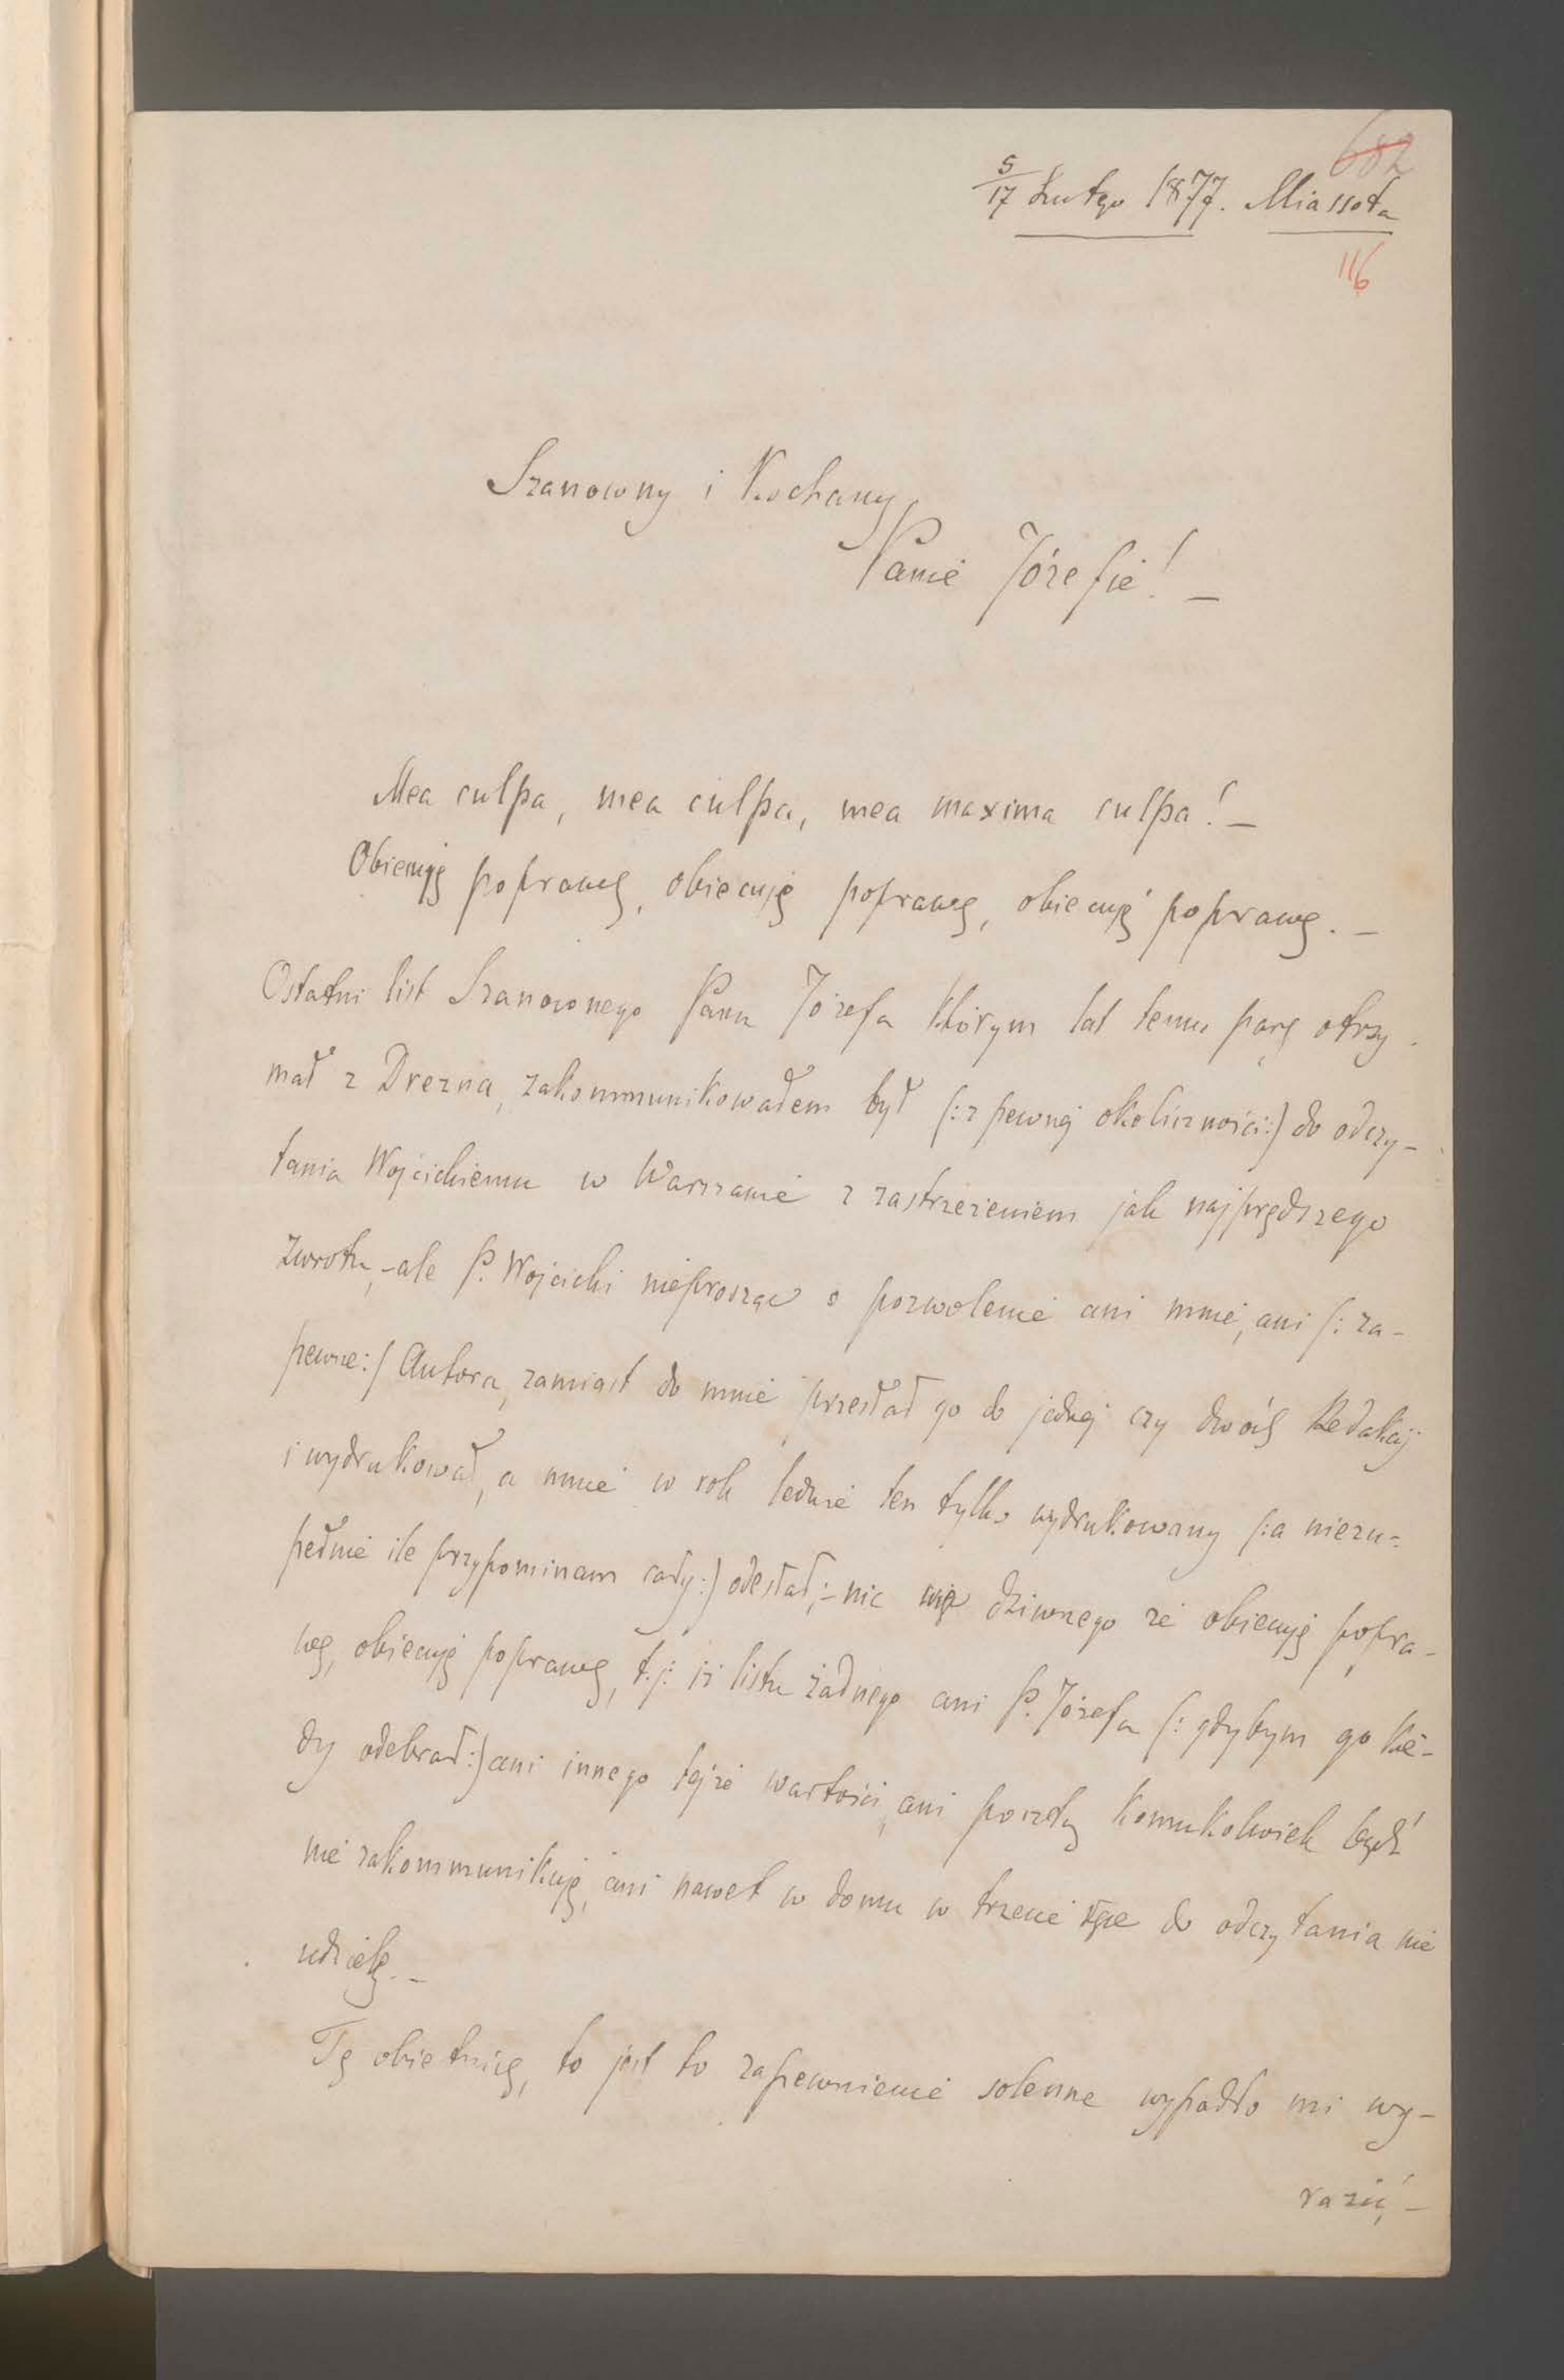 682
5/17 Lutego 1877. Miassota
116
Szanowny i Kochany
Panie Józefie! –
Mea culpa, mea culpa, mea maxima culpa! –
Obiecuję poprawę, obiecuję poprawę, obiecuję poprawę. –
Ostatni list Szanownego Pana Józefa którym lat temu parę otrzy-
mał z Drezna, zakommunikowałem był /:z pewnej okoliczności:/ do odczy-
tania Wojcickiemu w Warszawie z zastrzeżeniem jak najprędszego
zwrotu, – ale P. Wojcicki nieprosząc o pozwolenie ani mnie, ani /: za-
pewne:/ Autora, zamiast do mnie przesłał go do jednej czy dwóch Redakcij
i wydrukował, a mnie w rok ledwie ten tylko wydrukowany /:a niezu-
pełnie ile przypominam cały:/ odesłał; – nic więc dziwnego że obiecuję popra-
wę, obiecuję poprawę, t.j: iż listu żadnego ani P. Józefa /: gdybym go kie-
dy odebrał:/ ani innego tejże wartości, ani pocztą komukolwiek bądź
nie zakommunikuję, ani nawet w domu w trzecie ręce do odczytania nie
udzielę. –
Tę obietnicę, to jest to zapewnienie solenne wypadło mi wy-
razić, –